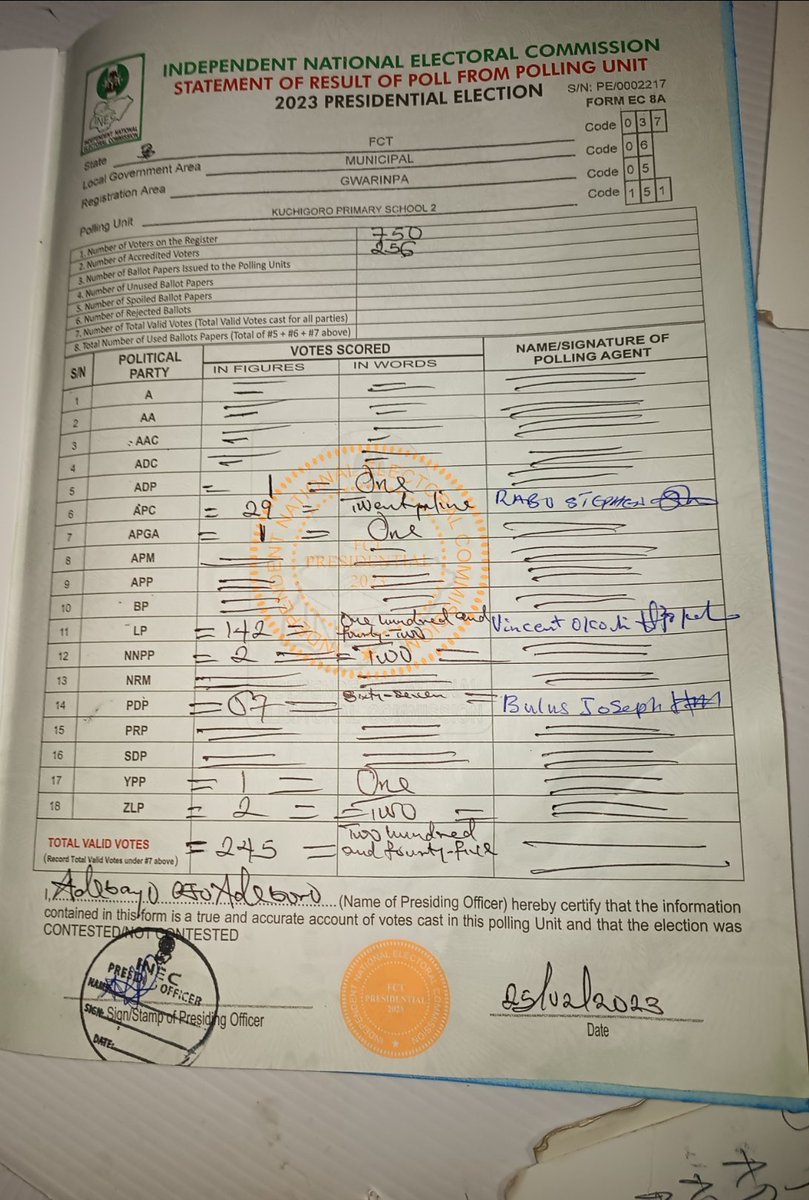 INDEPENDENT NATIONAL ELECTORAL COMMISSION
STATEMENT OF RESULT OF POLL FROM POLLING UNIT
2023 PRESIDENTIAL ELECTION
S/N: PE/0002217
FORM EC 8A
INEC
INDEPENDENT NATIONAL ELECTORAL COMMISSION
State FCT Code 037
Local Government Area MUNICIPAL Code 06
Registration Area GWARINPA Code 05
Polling Unit KUCHIGORO PRIMARY SCHOOL 2 Code 151
1. Number of Voters on the Register 750
2. Number of Accredited Voters 256
3. Number of Ballot Papers Issued to the Polling Units
4. Number of Unused Ballot Papers
5. Number of Spoiled Ballot Papers
6. Number of Rejected Ballots
7. Number of Total Valid Votes (Total Valid Votes cast for all parties)
8. Total Number of Used Ballots Papers (Total of #5 + #6 + #7 above)
S/N POLITICAL PARTY VOTES SCORED NAME/SIGNATURE OF POLLING AGENT
IN FIGURES IN WORDS
1 A
2 AA
3 AAC
4 ADC
5 ADP = 1 = One
6 APC = 29 = Twentynine RABO STEPHEN
7 APGA = 1 = One
8 APM
9 APP
10 BP
11 LP = 142 = One hundred and fourty-Two Vincent Okodi
12 NNPP = 2 = = TWO =
13 NRM
14 PDP = 67 = Sixty-seven = Bulus Joseph
15 PRP
16 SDP
17 YPP = 1 = One
18 ZLP = 2 = = TWO =
TOTAL VALID VOTES = 245 = Two hundred and fourty-five
(Record Total Valid Votes under #7 above)
I, Adebayo Adeboro (Name of Presiding Officer) hereby certify that the information
contained in this form is a true and accurate account of votes cast in this polling Unit and that the election was
CONTESTED/NOT CONTESTED
INEC
PRESIDING OFFICER
NAME:
SIGN:
DATE:
Sign/Stamp of Presiding Officer
INDEPENDENT NATIONAL ELECTORAL COMMISSION
FCT
PRESIDENTIAL
2023
25/02/2023
Date